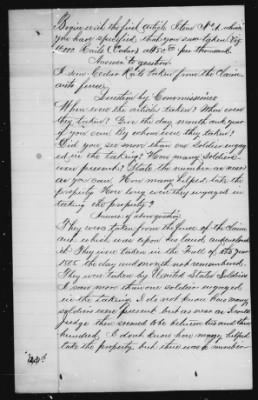 Begin with the first article Item No 1. which
you have specified, that you saw taken Viz
10000 Rails (Cedar) at $50 00 per thousand.
Answer to question.
I saw Cedar Rails taken from the Claim
ants fence.
Question by Commissioner
When were the articles taken? When were
they taken? Give the day month and year
if you can. By whom were they taken?
Did you see more than one Soldier engag
ed in the taking? How many Soldiers
were present? State the number as near
as you can. How many helped take the
property. How long were they engaged in
taking the property?
Answer of above question
They were taken from the fence of the Claim
ant which was upon his land,
it. They were taken in the of the year
1865 the day and month not remembered.
They were taken by United States Soldiers
I saw more than one soldier engaged
in the taking. I do not know how many
soldiers were present but as near as I could
judge there seemed to be between two and three
hundred. I don't know how many helped
take the property, but there was a number